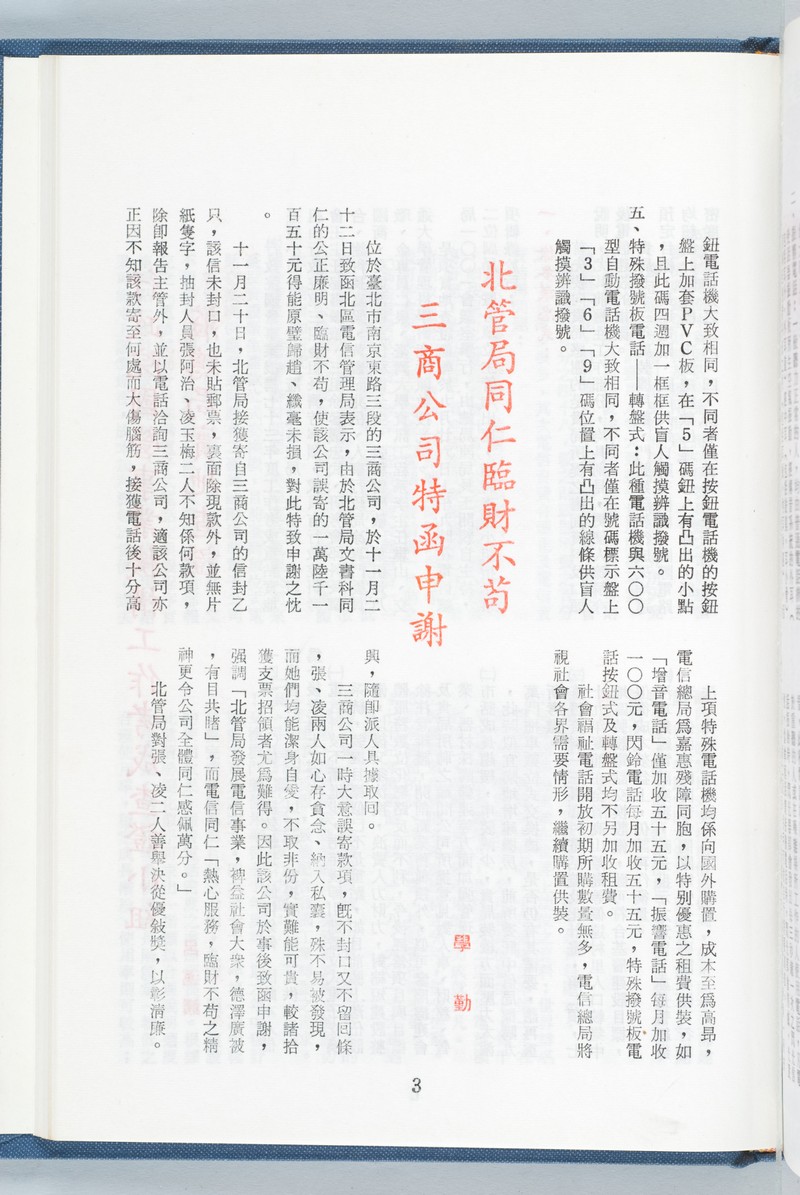 鈕電話機大致相同，不同者僅在按鈕電話機的按鈕
盤上加套PVC板，在「5」碼鈕上有凸出的小點
，且此碼四週加一框框供盲人觸摸辨識撥號。
五、特殊撥號板電話——轉盤式：此種電話機與六〇〇
型自動電話機大致相同，不同者僅在號碼標示盤上
「3」「6」「9」碼位置上有凸出的線條供盲人
觸摸辨識撥號。
上項特殊電話機均係向國外購置，成本至爲高昂，
電信總局爲嘉惠殘障同胞，以特別優惠之租費供裝，如
「增音電話」僅加收五十五元，「振響電話」每月加收
一〇〇元，閃鈴電話每月加收五十五元，特殊撥號板電
話按鈕式及轉盤式均不另加收租費。
社會福祉電話開放初期所購數量無多，電信總局將
視社會各界需要情形，繼續購置供裝。
北管局同仁臨財不苟
三商公司特函申謝
學勤
位於臺北市南京東路三段的三商公司，於十一月二
十二日致函北區電信管理局表示，由於北管局文書科同
仁的公正廉明、臨財不苟，使該公司誤寄的一萬陸千一
百五十元得能原璧歸趙、纖毫未損，對此特致申謝之忱
。
十一月二十日，北管局接獲寄自三商公司的信封乙
只，該信未封口，也未貼郵票，裏面除現款外，並無片
紙隻字，抽封人員張阿治、凌玉梅二人不知係何款項，
除卽報告主管外，並以電話洽詢三商公司，適該公司亦
正因不知該款寄至何處而大傷腦筋，接獲電話後十分高
興，隨卽派人具據取回。
三商公司一時大意誤寄款項，旣不封口又不留回條
，張、凌兩人如心存貪念、納入私囊，殊不易被發現，
而她們均能潔身自愛，不取非份，實難能可貴，較諸拾
獲支票招領者尤爲難得。因此該公司於事後致函申謝，
强調「北管局發展電信事業，裨益社會大衆，德澤廣被
，有目共睹」，而電信同仁「熱心服務，臨財不苟之精
神更令公司全體同仁感佩萬分。」
北管局對張、凌二人善舉決從優敍獎，以彰清廉。
3